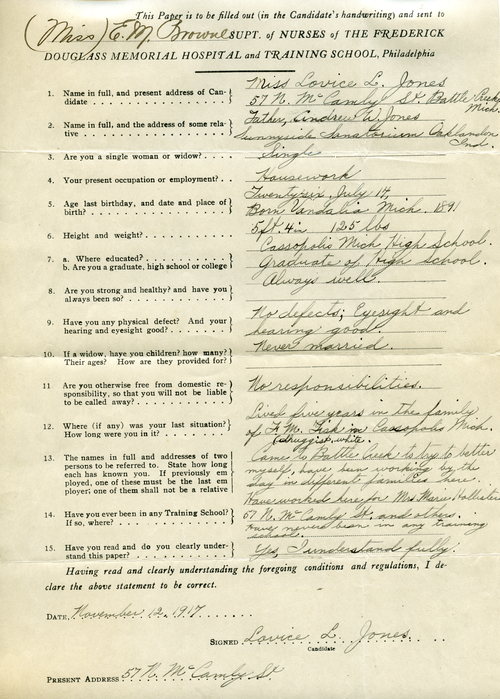 This Paper is to be filled out (in the Candidate's handwriting) and sent to
(Miss) E. M. Browne SUPT. of NURSES of THE FREDERICK
DOUGLASS MEMORIAL HOSPITAL and TRAINING SCHOOL, Philadelphia
1. Name in full, and present address of Candidate
Miss Lovice L. Jones
57 N. McCamly St. Battle Creek Mich.
2. Name in full, and the address of some relative
Father, Andrew W. Jones
Sunnyside Sanatorium Oaklandon Ind.
3. Are you a single woman or widow?
Single
4. Your present occupation or employment?
Housework
5. Age last birthday, and date and place of birth?
Twentysix, July 14,
Born Vandalia Mich. 1891
6. Height and weight?
5ft 4in 125 lbs
7. a. Where educated?
b. Are you a graduate, high school or college
Cassopolis Mich High School.
Graduate of High School.
8. Are you strong and healthy? and have you always been so?
Always well.
9. Have you any physical defect? And your hearing and eyesight good?
No defects; Eyesight and
hearing good.
10. If a widow, have you children? how many? Their ages? How are they provided for?
Never married.
11. Are you otherwise free from domestic responsibility, so that you will not be liable to be called away?
No responsibilities.
12. Where (if any) was your last situation? How long were you in it?
Lived five years in the family
of F. M. Fisk in Cassopolis Mich.
(druggist, white.
13. The names in full and addresses of two persons to be referred to. State how long each has known you. If previously employed, one of these must be the last employer; one of them shall not be a relative
Came to Battle Creek to try to better
myself, have been working by the
day in different families here.
Have worked here for Mrs. Marie Hollister
57 N. McCamly St. and others.
14. Have you ever been in any Training School? If so, where?
Have never been in any training
school.
15. Have you read and do you clearly understand this paper?
Yes, I understand fully.
Having read and clearly understanding the foregoing conditions and regulations, I de-
clare the above statement to be correct.
DATE, November 12, 1917
SIGNED Lovice L. Jones
Candidate
PRESENT ADDRESS 57 N. McCamly St